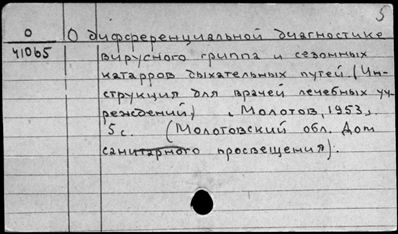 5
О О дифференциальной диагностике
41065 вирусного гриппа и сезонных
катарров дыхательных путей. (Ин-
струкция для врачей лечебных уч-
реждений) Молотов, 1953.
5 с. (Молотовский обл. Дом
санитарного просвещения).